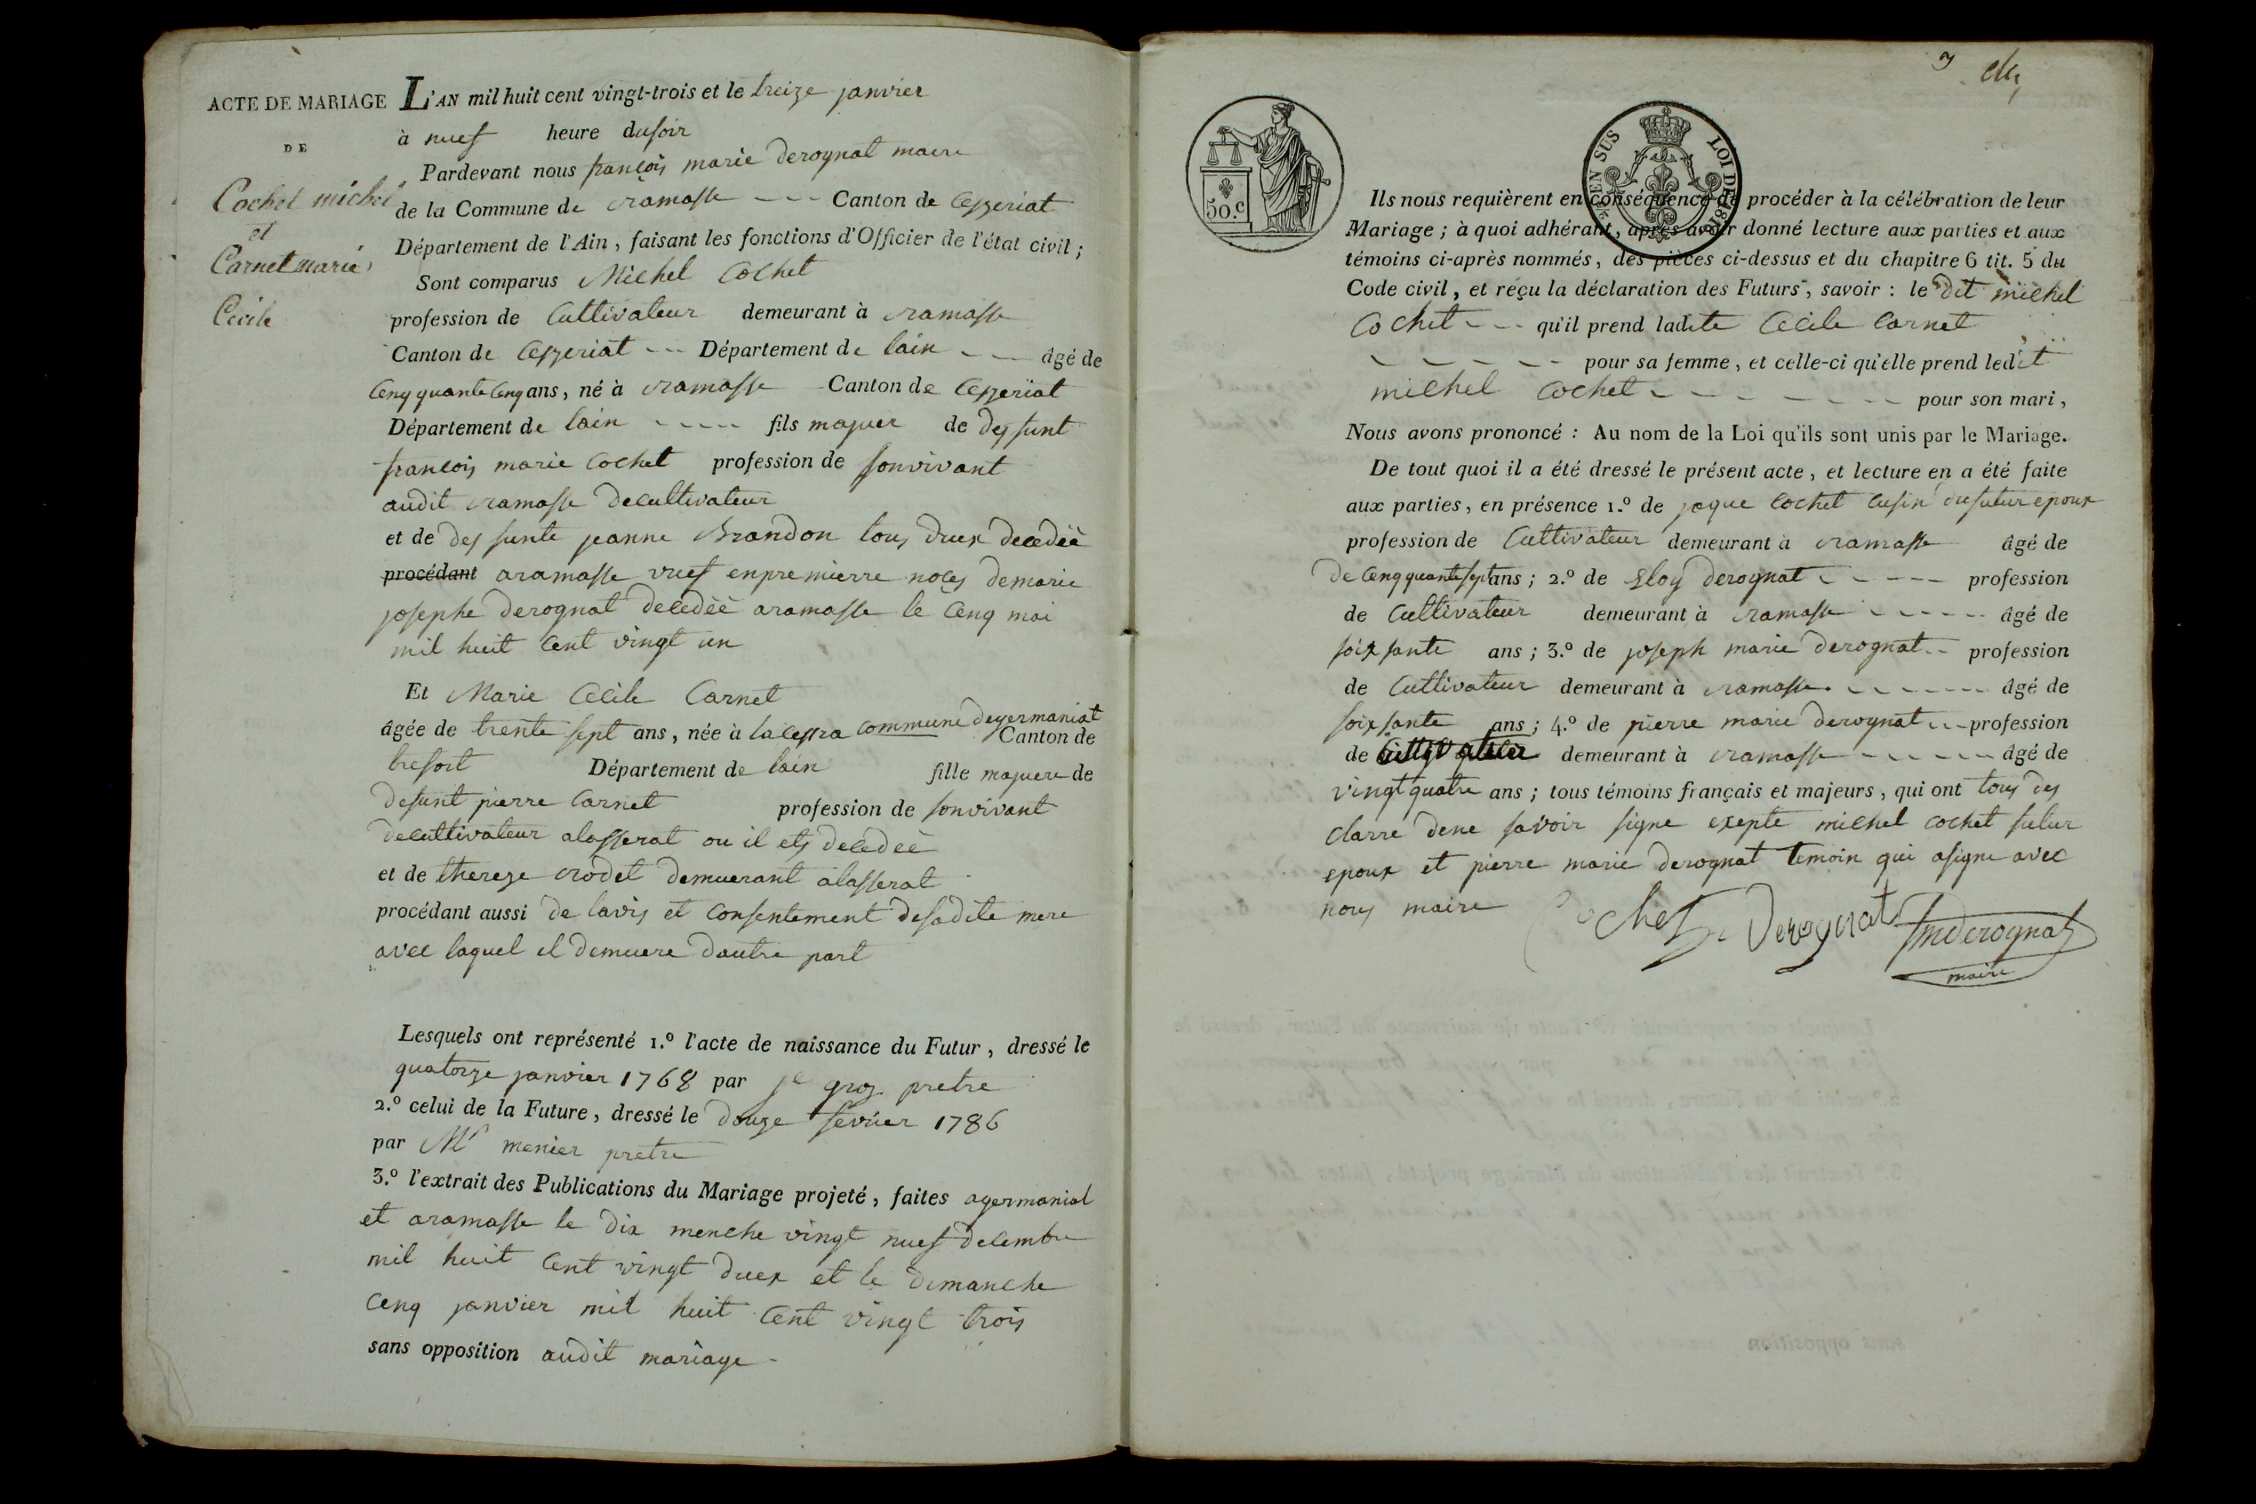 ACTE DE MARIAGE
DE
Cochet michel
et
Carnet marie
Cecile
L'AN mil huit cent vingt-trois et le treize janvier
à nuef heure dusoir
Pardevant nous françois marie derognat maire
de la Commune de ramasse --- Canton de Cezeriat
Département de l'Ain, faisant les fonctions d'Officier de l'état civil;
Sont comparus Michel Cochet
profession de Cultivateur demeurant à ramasse
Canton de Cezeriat --- Département de lain --- âgé de
Cenq quante Cenq ans, né à ramasse Canton de Cezeriat
Département de lain ---- fils majuer de deffunt
françois marie Cochet profession de sonvivant
audit ramasse decultivateur
et de deffunte jeanne Brandon tous duex decedèè
procédant aramasse vuef enpremierre noces demarie
josephe derognat decedèè aramasse le Cenq mai
mil huit Cent vingt un
Et Marie Cecile Carnet
âgée de trente sept ans, née à commune degermaniat
Canton de
tresort Département de lain fille majuere de
defunt pierre Carnet profession de sonvivant
decultivateur alasserat ou il ets decedèè
et de therese rodet demuerant alasserat
procédant aussi de lavis et Consentement desadite mere
avec laquel il demuere dautre part
Lesquels ont représenté 1.º l'acte de naissance du Futur, dressé le
quatorze janvier 1768 par gros pretre
2.º celui de la Future, dressé le douze fevrier 1786
par Mr menier pretre
3.º l'extrait des Publications du Mariage projeté, faites agermaniat
et aramasse le dix menche vingt nuef decembre
mil huit Cent vingt duex et le dimanche
Cenq janvier mil huit Cent vingt trois
sans opposition audit mariage -
3
50.c
EN SUS LOI DE 1816
Ils nous requièrent en conséquence de procéder à la célébration de leur
Mariage; à quoi adhérant, après avoir donné lecture aux parties et aux
témoins ci-après nommés, des pièces ci-dessus et du chapitre 6 tit. 5 du
Code civil, et reçu la déclaration des Futurs, savoir: le dit michel
Cochet --- qu'il prend ladite Cecile Carnet
------ pour sa femme, et celle-ci qu'elle prend ledit
michel Cochet ------- pour son mari,
Nous avons prononcé: Au nom de la Loi qu'ils sont unis par le Mariage.
De tout quoi il a été dressé le présent acte, et lecture en a été faite
aux parties, en présence 1.º de jaque Cochet Cusin dufutur epoux
profession de Cultivateur demeurant à ramasse âgé de
de Cenq quante sept ans; 2.º de Eloy derognat ----- profession
de Cultivateur demeurant à ramasse ----- âgé de
soixsante ans; 3.º de joseph marie derognat -- profession
de Cultivateur demeurant à ramasse ------ âgé de
soixsante ans; 4.º de pierre marie derognat --- profession
de Cultivateur demeurant à ramasse ----- âgé de
vingt quatre ans; tous témoins français et majeurs, qui ont tous des
clarre dene savoir signe exepte michel cochet futur
epoux et pierre marie derognat temoin qui asigne avec
nous maire Cochet Derognat fmderognat
maire